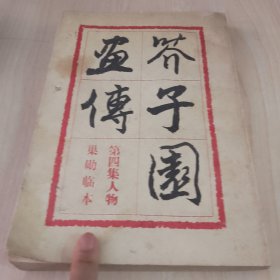 芥子園
畫傳
第四集人物
巢勛临本